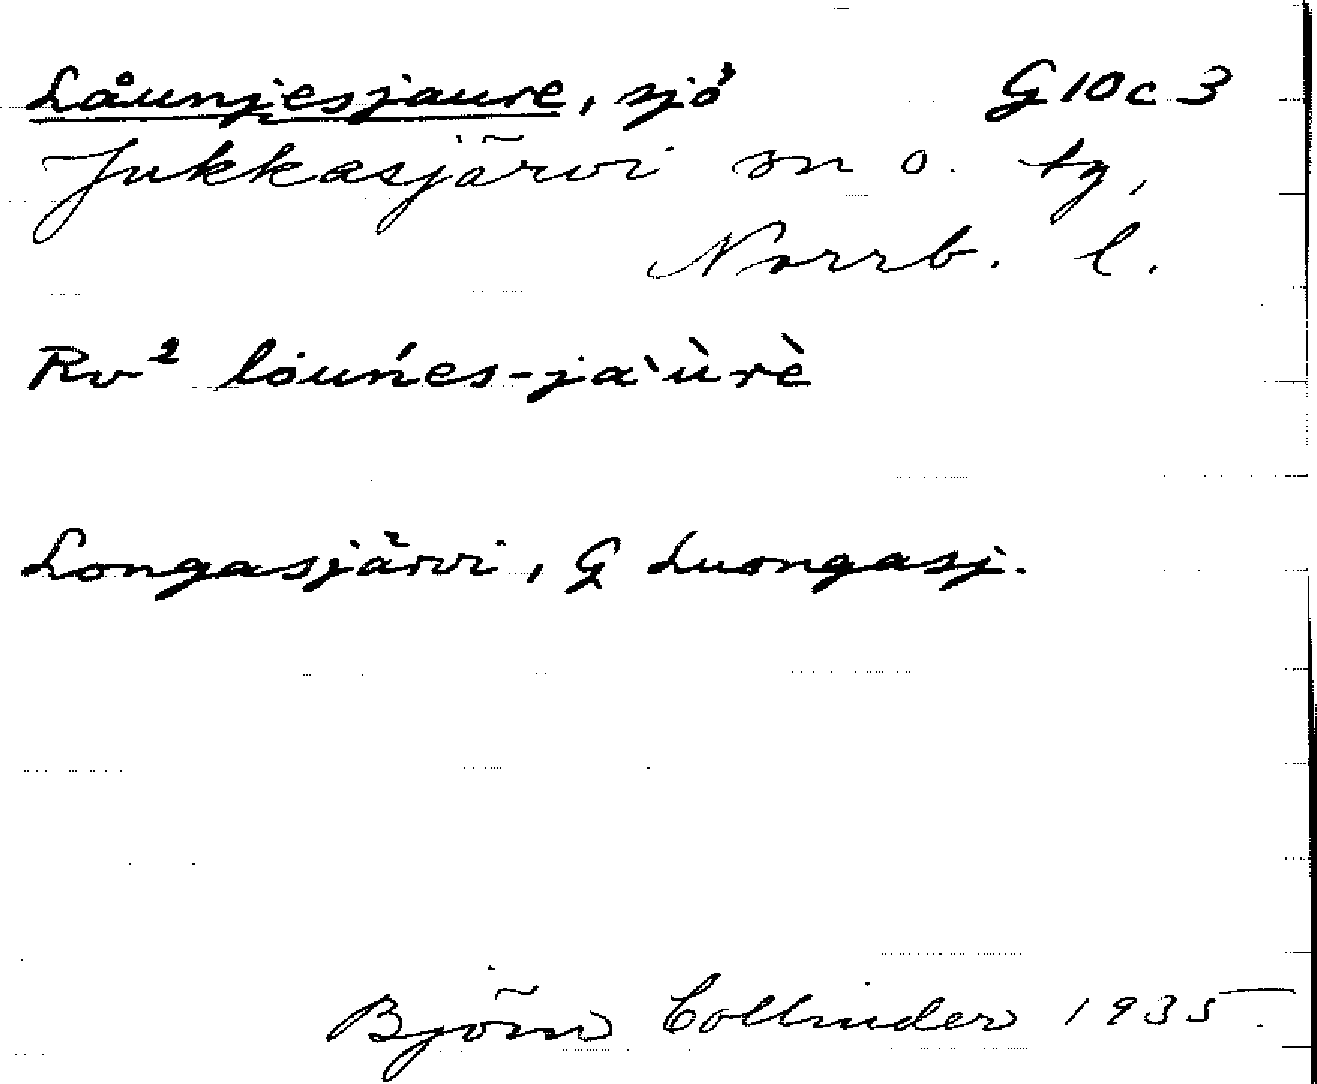 Låunjesjaure, sjö G10c3
Jukkasjärvi sn o. tg,
Norrb. l.
Rv² lóuńes-ja`ùrè
Longasjärvi, G Luongasj.
Björn Collinder 1935.